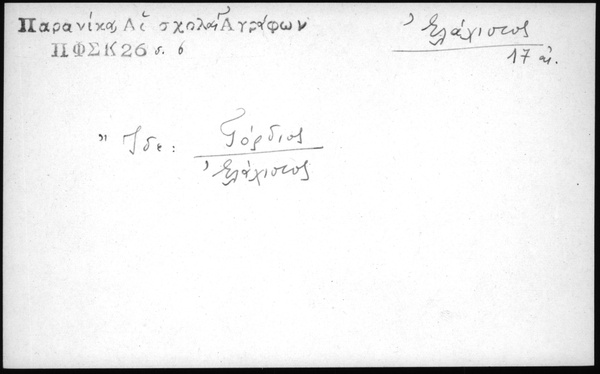 Παρανίκα, Αἱ σχολαὶ Ἀγράφων
ΠΦΣΚ 26 σ. 6
Ἐλάχιστος
17 αἰ.
Ἴδε: Γόρδιος
Ἐλάχιστος